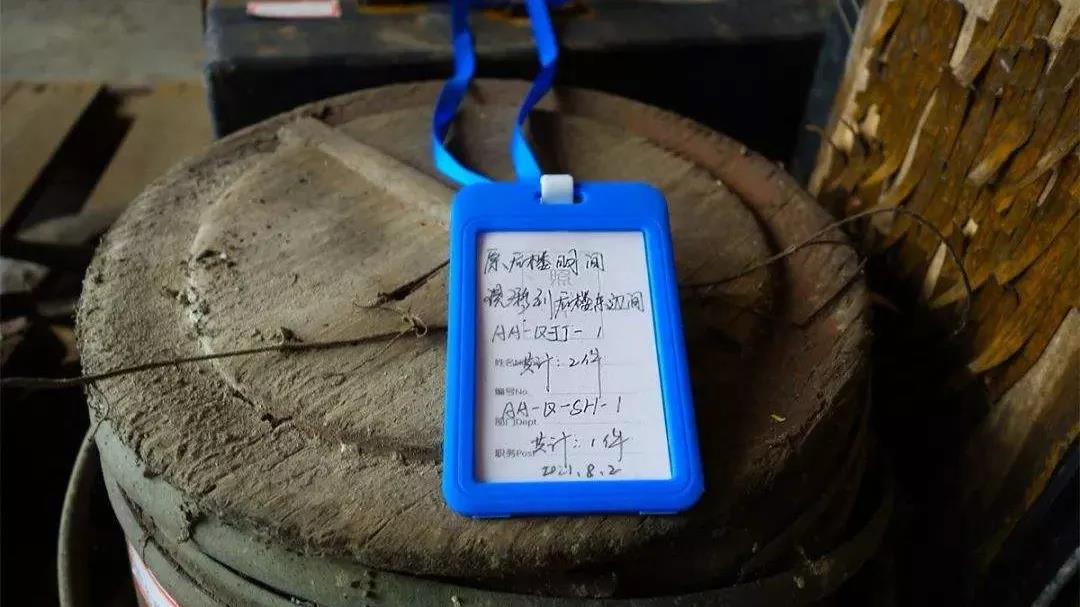 原后楼明间
照
现移到后楼东边间
AA-Q-JJ-1
姓名
共计:2件
编号No.
AA-Q-SH-1
部门Dept
共计:1件
职务Post
2021.8.2